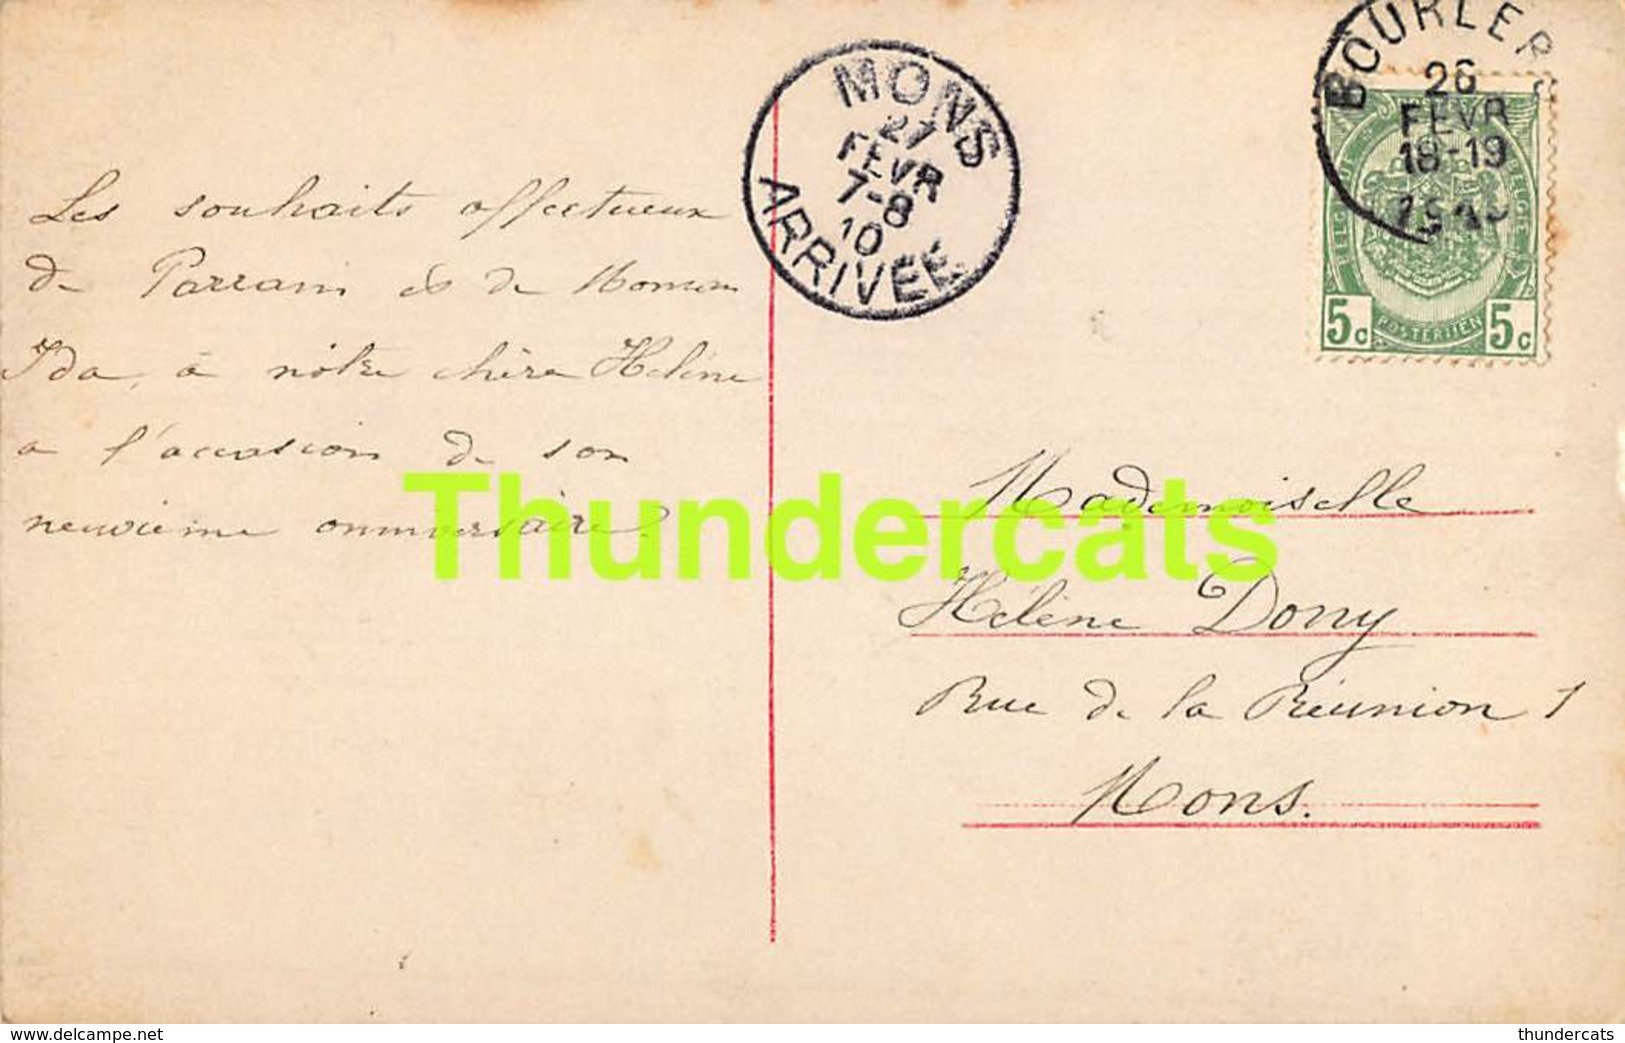 Les souhaits affectueux
de Parrain et de Maman
Ida, à notre chère Hélène
a l'occasion de son
neuvième anniversaire.
MONS
27
FEVR
7-8
10
ARRIVÉE
BOURLER
26
FEVR
18-19
5c
POSTERIJEN
5c
Mademoiselle
Hélène Dony
Rue de la Réunion 1
Mons.
Thundercats
delcampe.net
thundercats